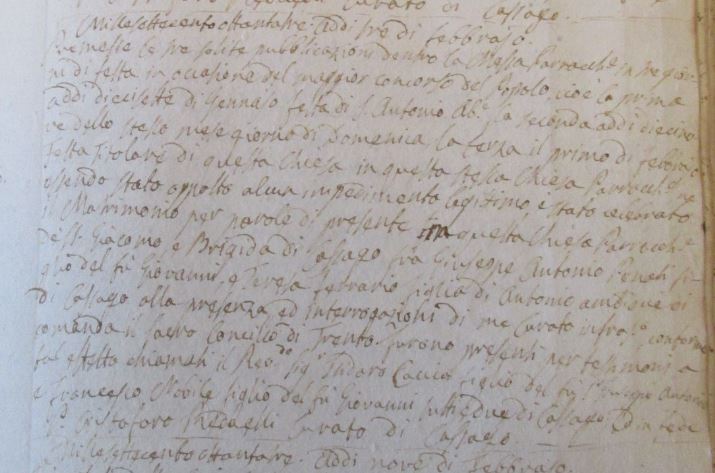 Curato di Cassago.
Millesettecento ottantatre. addi tre di Febbraro.
Premesse le tre solite pubblicazioni dentro la Messa Parrocch.e in tre gior:
ni di festa in occasione del maggior concorso del Popolo, cioè la prima
addi diecisette di Gennaro festa di S. Antonio Ab.e la seconda addi diecino:
ve dello stesso mese giorno di Domenica, la terza il primo di Febbraro
Festa Titolare di questa Chiesa in questa stessa Chiesa Parrocch.e ne
essendo stato opposto alcun impedimento legitimo è stato celebrato
il Matrimonio per parole di presente in questa Chiesa Parrocch.e
de SS. Giacomo e Brigida di Cassago fra Giuseppe Antonio fi:
glio del fù Giovanni, e Teresa Ferrario figlia di Antonio ambidue di
di Cassago alla presenza, ed interrogazioni di me Curato infra.o conforme
comanda il sacro Concilio di Trento. furono presenti per testimonj a
tal effetto chiamati il Rev.do Sig.r Cattaneo figlio del fù Antonio
e Francesco Nobile figlio del fù Giovanni tutti due di Cassago. Ed in fede
Cristoforo Curato di Cassago
Millesettecento ottantatre. addi nove di Febbraro